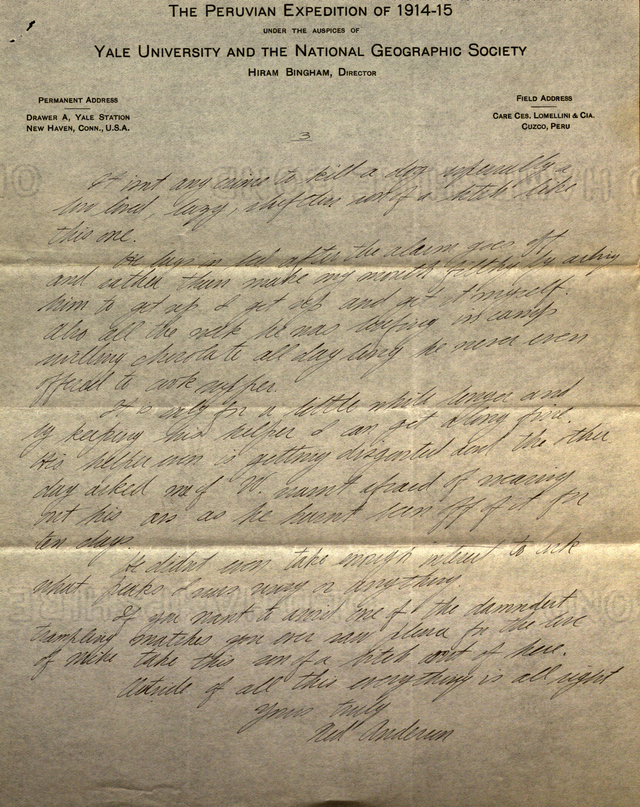 THE PERUVIAN EXPEDITION OF 1914-15
UNDER THE AUSPICES OF
YALE UNIVERSITY AND THE NATIONAL GEOGRAPHIC SOCIETY
HIRAM BINGHAM, DIRECTOR
PERMANENT ADDRESS
DRAWER A, YALE STATION
NEW HAVEN, CONN., U.S.A.
FIELD ADDRESS
CARE CES. LOMELLINI & CIA.
CUZCO, PERU
3
It isnt any crime to kill a dog especially a
low lived, lazy, son of a bitch like
this one.
He lays in bed after the alarm goes off
and rather than make my mouth filthy by asking
him to get up I get up and get it myself.
Also all the week he was loafing in camp
swilling chocolate all day long he never even
offered to cook supper.
It is only for a little while longer and
by keeping his helper I can get along fine.
His helper even is getting disgusted and the other
day asked me if W. wasnt afraid of wearing
out his ars as he hasnt been off of it for
ten days.
He didnt even take enough interest to ask
what peaks I was using or anything
If you want to avoid one of the damndest
trampling matches you ever saw please for the love
of mike take this son of a bitch out of here.
Outside of all this everything is all right
Yours truly
Anderson